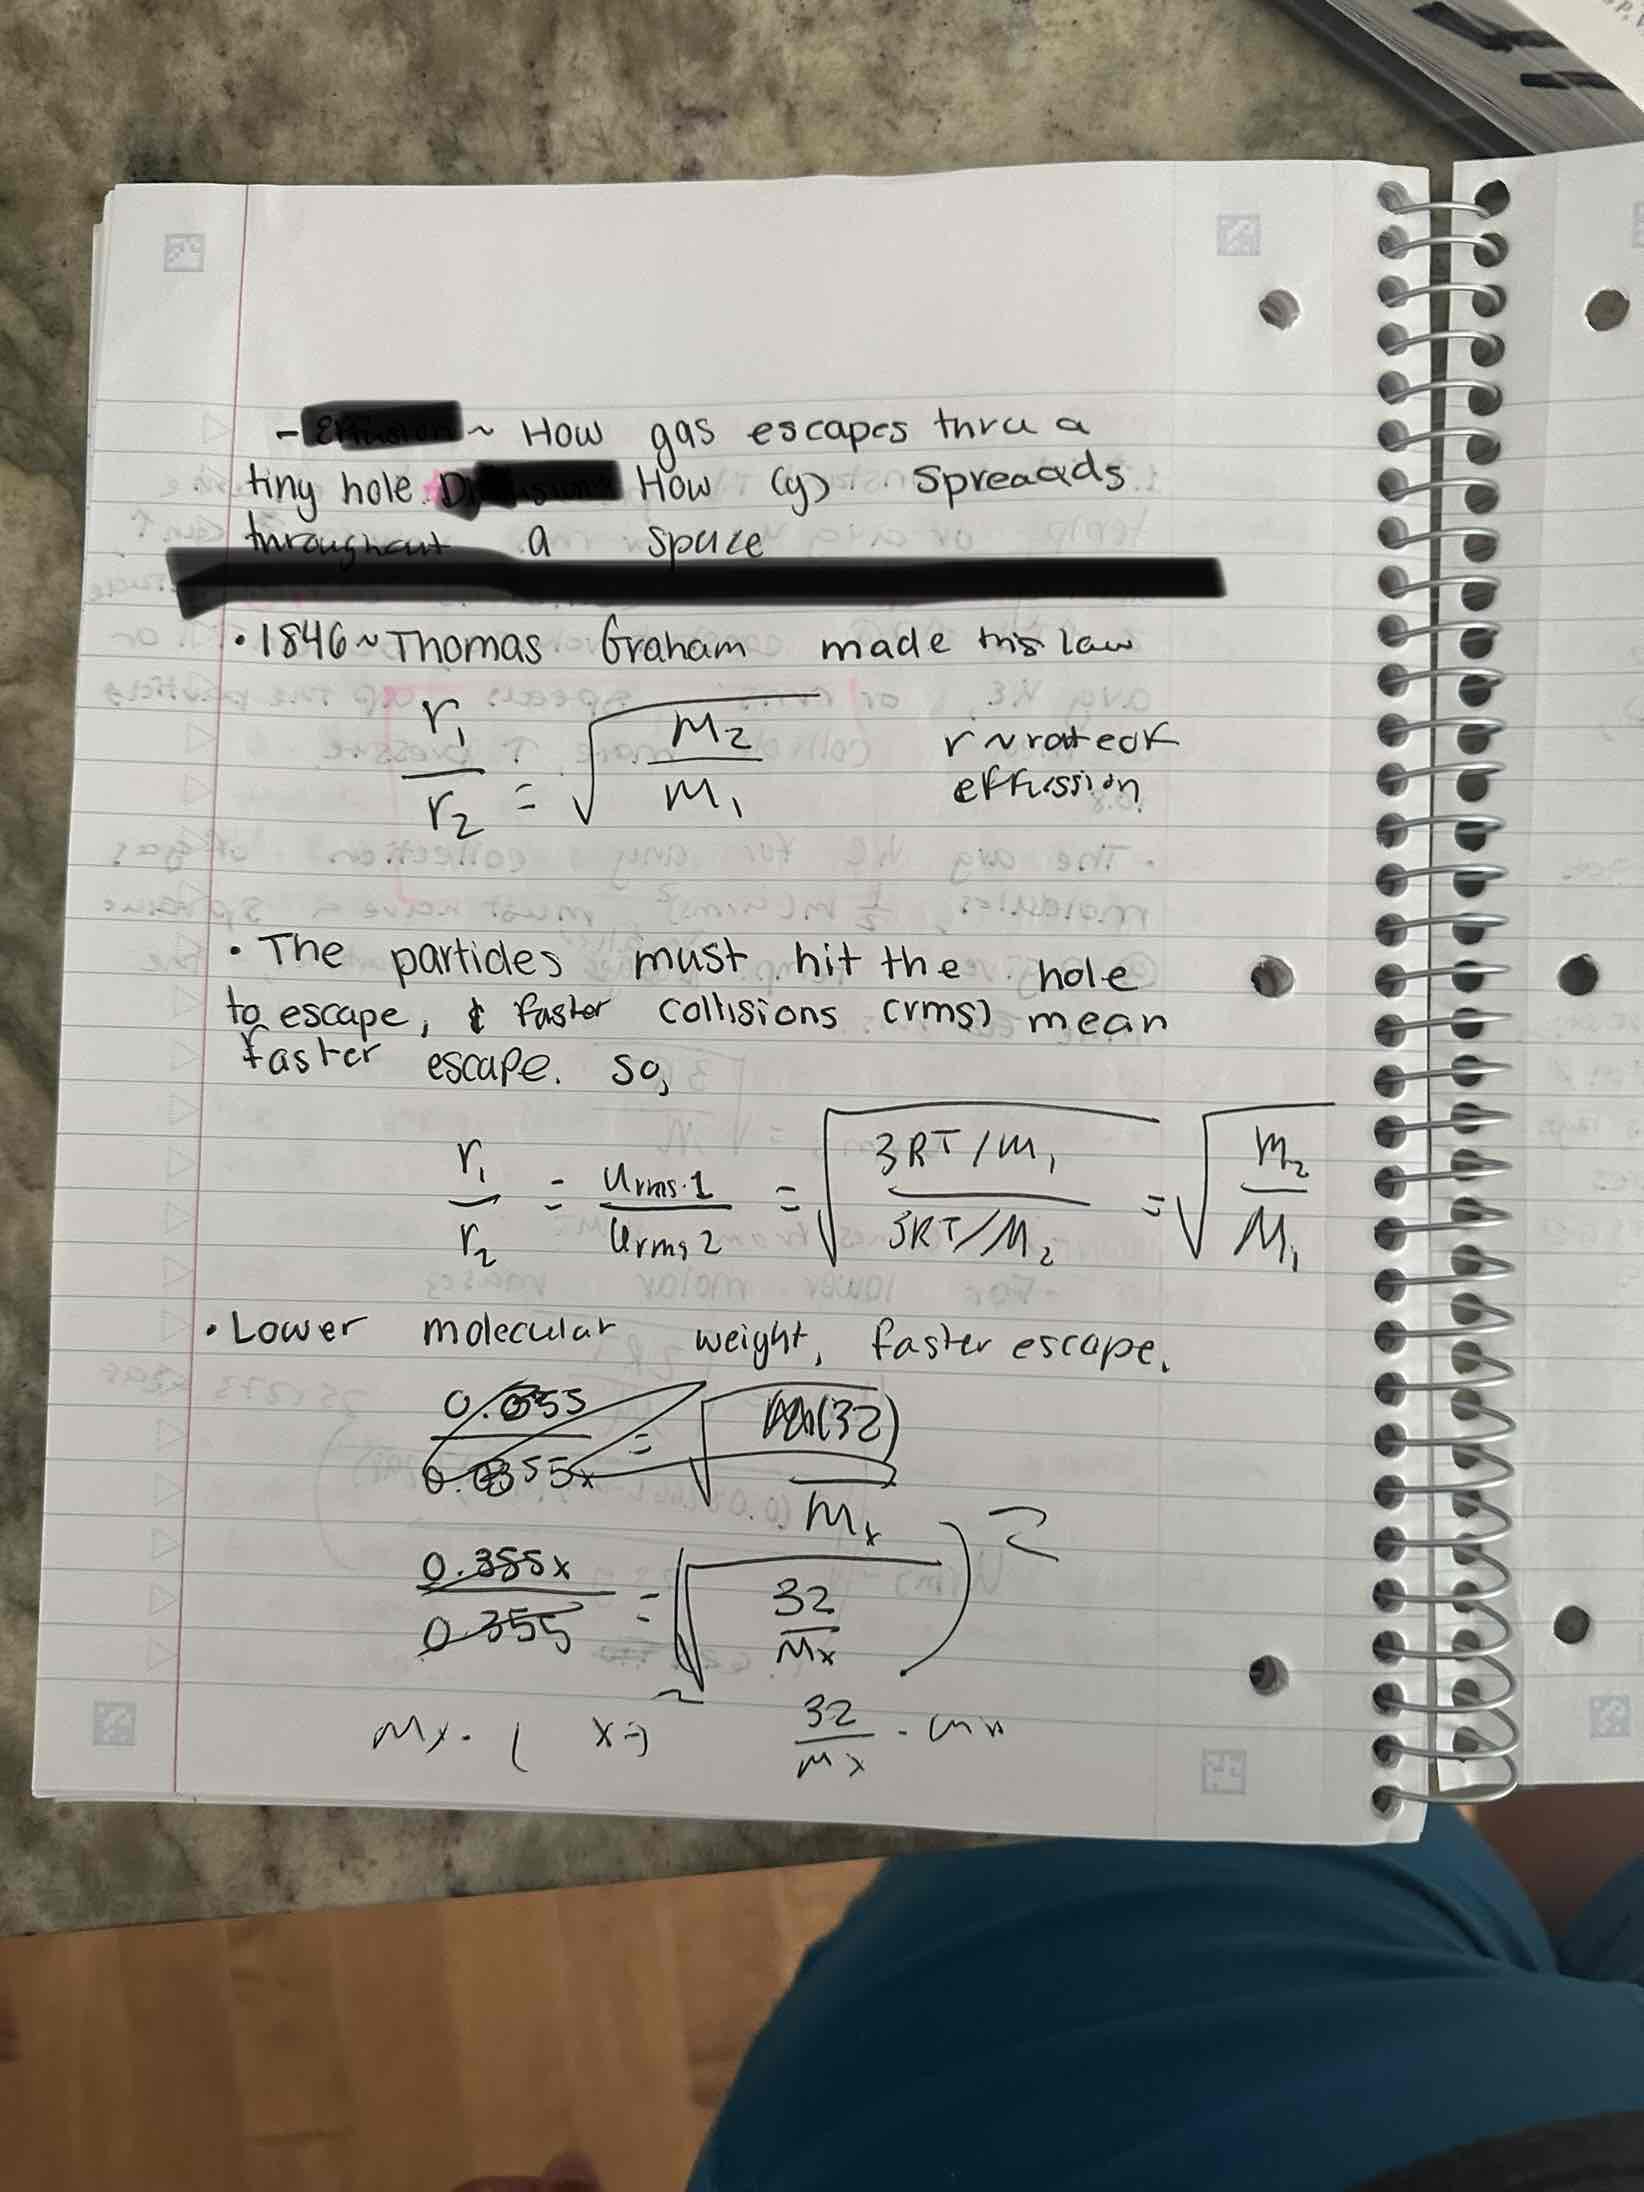 - ~ How gas escapes thru a
tiny hole. How (g) Spreaads
throughout a space
• 1846 ~ Thomas Graham made this law
r₁/r₂ = √(M₂/M₁)
r ~ rate of
effussion
• The particles must hit the hole
to escape, & faster collisions (rms) mean
faster escape. so,
r₁/r₂ = Urms 1/Urms 2 = √((3RT/M₁)/(3RT/M₂)) = √(M₂/M₁)
• Lower molecular weight, faster escape.
= √((32)/Mx)
0.355x/0.355 = √(32/Mx) 2
Mx · ( x = ) 2 32/Mx ·